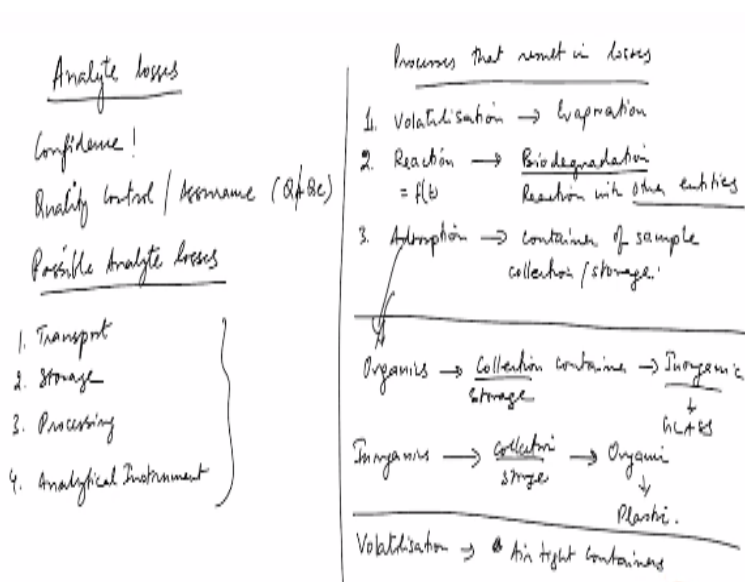 Analyte losses
Confidence!
Quality Control / Assurance (QA/QC)
Possible Analyte losses
1. Transport
2. Storage
3. Processing
4. Analytical Instrument
Processes that result in losses
1. Volatilisation → Evaporation
2. Reaction → Biodegradation
= f(t) Reaction with other entities
3. Adsorption → container of sample
collection / storage.
Organics → Collection container → Inorganic
storage ↓
GLASS
Inorganics → Collection → Organic
storage ↓
Plastic.
Volatilisation → Air tight containers